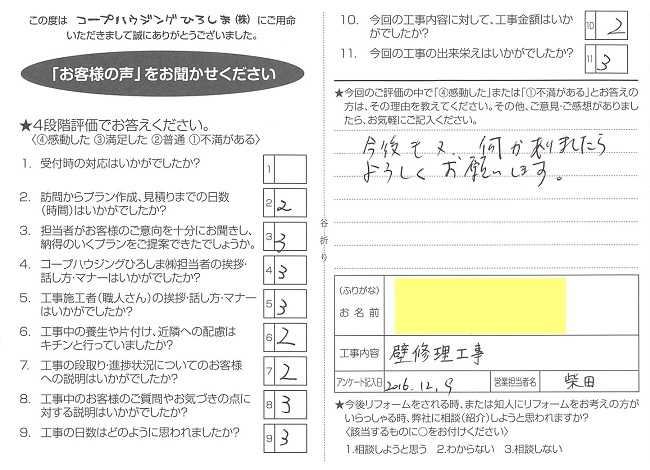 この度は コープハウジングひろしま(株) にご用命
いただきまして誠にありがとうございました。
「お客様の声」をお聞かせください
★4段階評価でお答えください。
〈④感動した ③満足した ②普通 ①不満がある〉
1. 受付時の対応はいかがでしたか?
1
2. 訪問からプラン作成、見積りまでの日数
(時間)はいかがでしたか?
2 2
3. 担当者がお客様のご意向を十分にお聞きし、
納得のいくプランをご提案できたでしょうか。
3 3
4. コープハウジングひろしま㈱担当者の挨拶・
話し方・マナーはいかがでしたか?
4 3
5. 工事施工者(職人さん)の挨拶・話し方・マナー
はいかがでしたか?
5 3
6. 工事中の養生や片付け、近隣への配慮は
キチンと行っていましたか?
6 2
7. 工事の段取り・進捗状況についてのお客様
への説明はいかがでしたか?
7 2
8. 工事中のお客様のご質問やお気づきの点に
対する説明はいかがでしたか?
8 3
9. 工事の日数はどのように思われましたか?
9 3
谷折り
10. 今回の工事内容に対して、工事金額はいか
がでしたか?
10 2
11. 今回の工事の出来栄えはいかがでしたか?
11 3
★今回のご評価の中で「④感動した」または「①不満がある」とお答えの
方は、その理由を教えてください。その他、ご意見・ご感想がありまし
たら、お気軽にご記入ください。
今後も又、何かありましたら
よろしくお願いします。
(ふりがな)
お名前
工事内容 壁修理工事
アンケート記入日 2016.12.9 営業担当者名 柴田
★今後リフォームをされる時、または知人にリフォームをお考えの方が
いらっしゃる時、弊社に相談(紹介)しようと思われますか?
〈該当するものに○をお付けください〉
1.相談しようと思う 2.わからない 3.相談しない